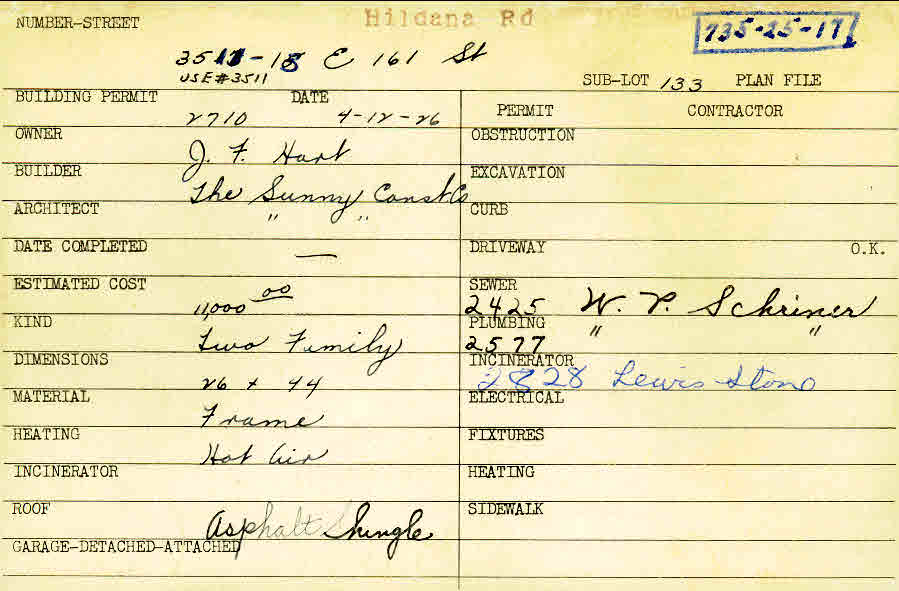 Hildana Rd
NUMBER-STREET
735-25-17
E 161 St
USE #3511
SUB-LOT 133 PLAN FILE
BUILDING PERMIT DATE
2710 4-12-26
PERMIT CONTRACTOR
OWNER J. F. Hart
OBSTRUCTION
BUILDER The Sunny Const Co
EXCAVATION
ARCHITECT " "
CURB
DATE COMPLETED —
DRIVEWAY O.K.
ESTIMATED COST 11,000 00
SEWER 2425 W. P. Schriner
KIND Two Family
PLUMBING 2577 " "
DIMENSIONS 26 + 44
INCINERATOR 2828 Lewis Stone
MATERIAL Frame
ELECTRICAL
HEATING Hot Air
FIXTURES
INCINERATOR
HEATING
ROOF Asphalt Shingle
SIDEWALK
GARAGE-DETACHED-ATTACHED